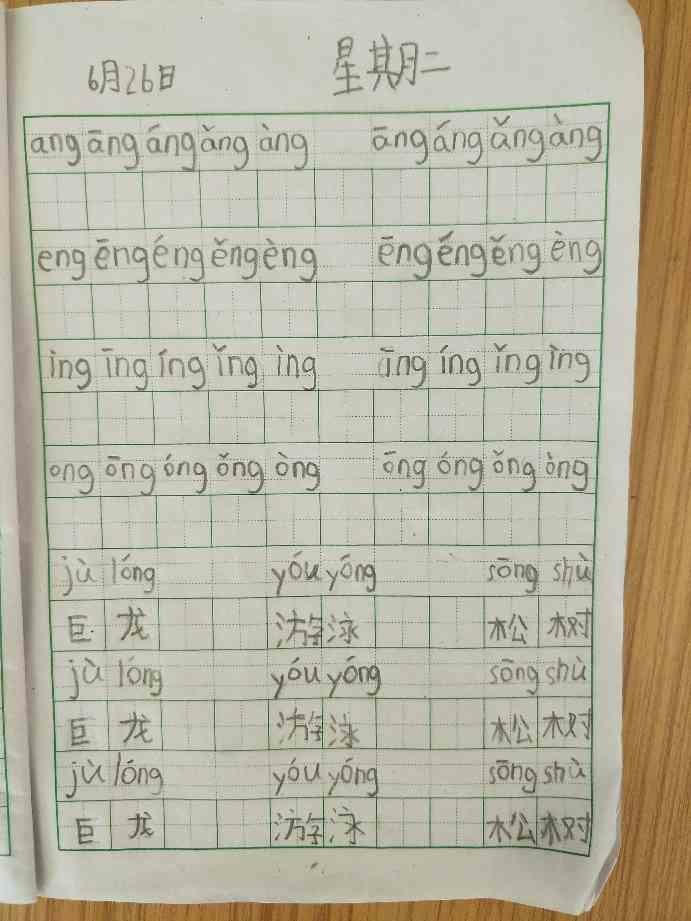 6月26日 星期二
ang āng áng ǎng àng āng áng ǎng àng
eng ēng éng ěng èng ēng éng ěng èng
ing īng íng ǐng ìng īng íng ǐng ìng
ong ōng óng ǒng òng ōng óng ǒng òng
jù lóng yóu yóng sōng shù
巨 龙 游 泳 松 树
jù lóng yóu yóng sōng shù
巨 龙 游 泳 松 树
jù lóng yóu yóng sōng shù
巨 龙 游 泳 松 树